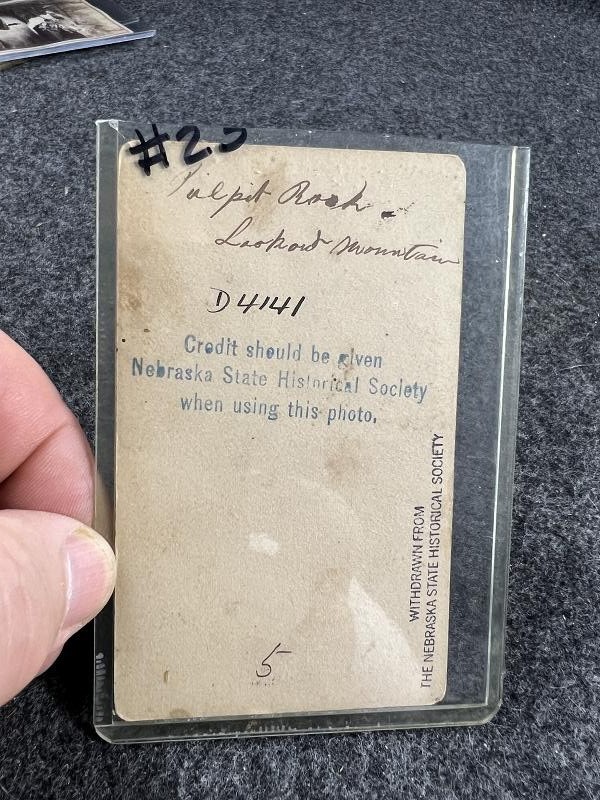 #23
Pulpit Rock.
Lookout Mountain
D4141
Credit should be given
Nebraska State Historical Society
when using this photo.
WITHDRAWN FROM
THE NEBRASKA STATE HISTORICAL SOCIETY
5